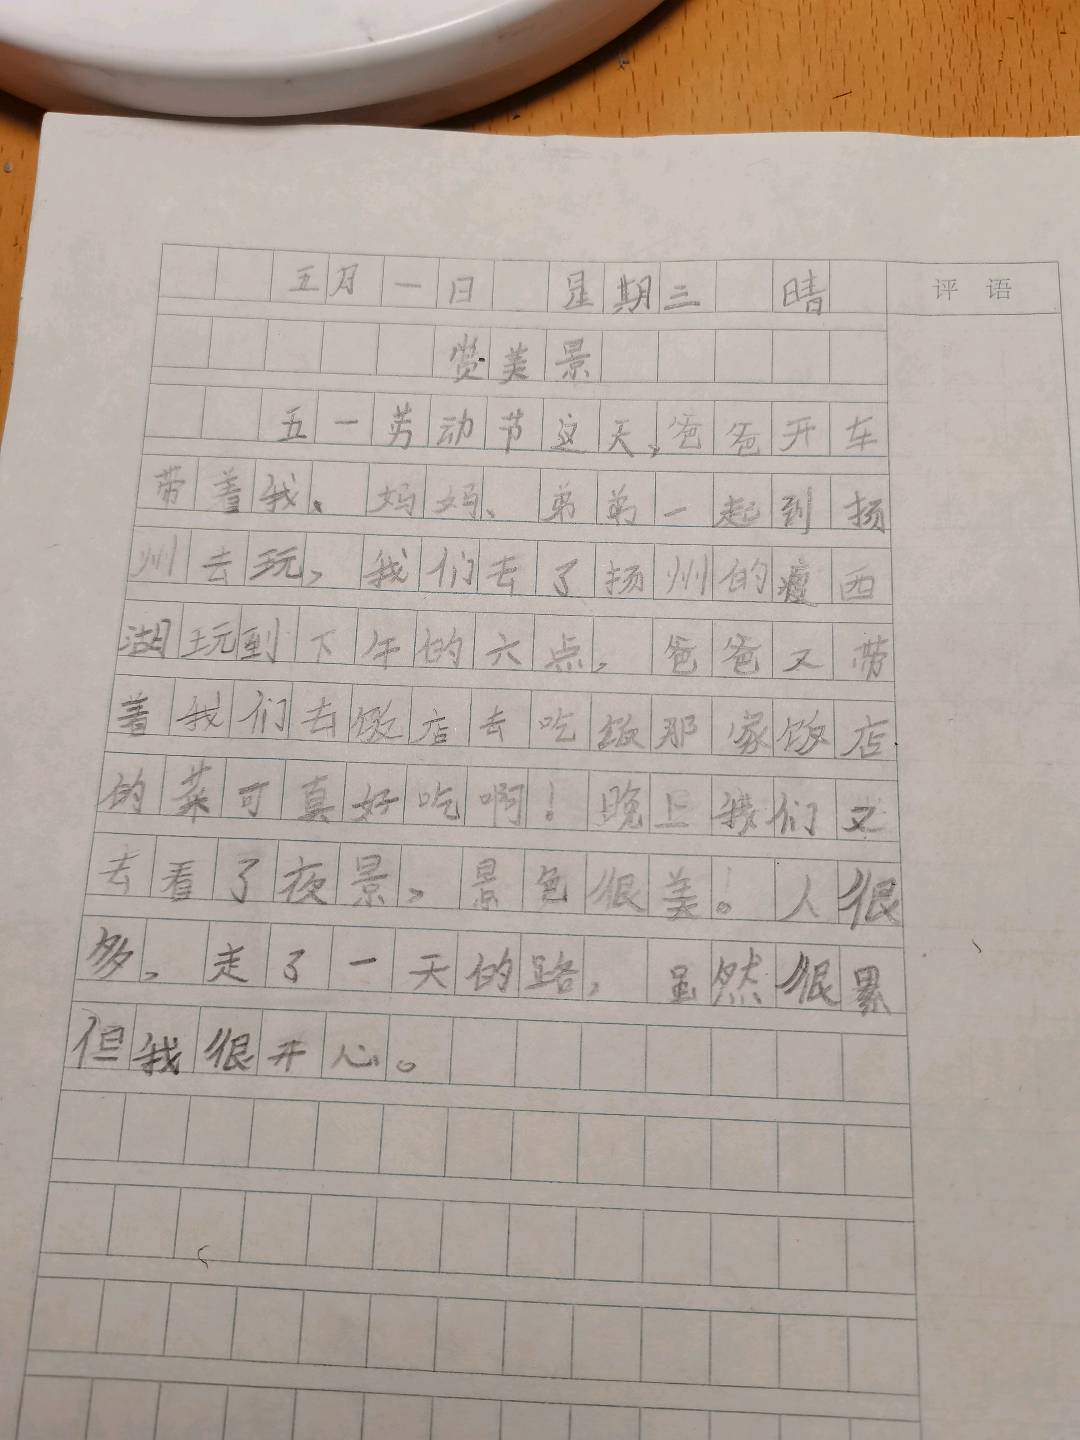 五月一日 星期三 晴
评语
赏美景
五一劳动节这天,爸爸开车
带着我、妈妈、弟弟一起到扬
州去玩,我们去了扬州的瘦西
湖玩到下午的六点,爸爸又带
着我们去饭店去吃饭那家饭店
的菜可真好吃啊!晚上我们又
去看了夜景,景色很美!。人很
多,走了一天的路,虽然很累
但我很开心。